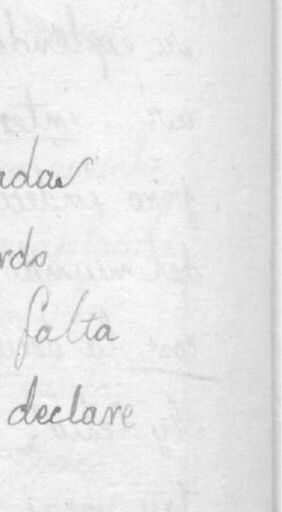 adas
rdo
falta
declare